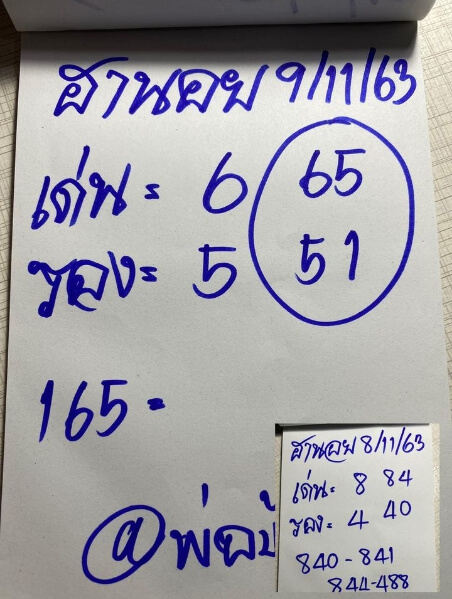 ฮานอย 9/11/63
เด่น= 6 65
รอง= 5 51
165=
@พ่อ
ฮานอย 8/11/63
เด่น= 8 84
รอง= 4 40
840-841
844-488